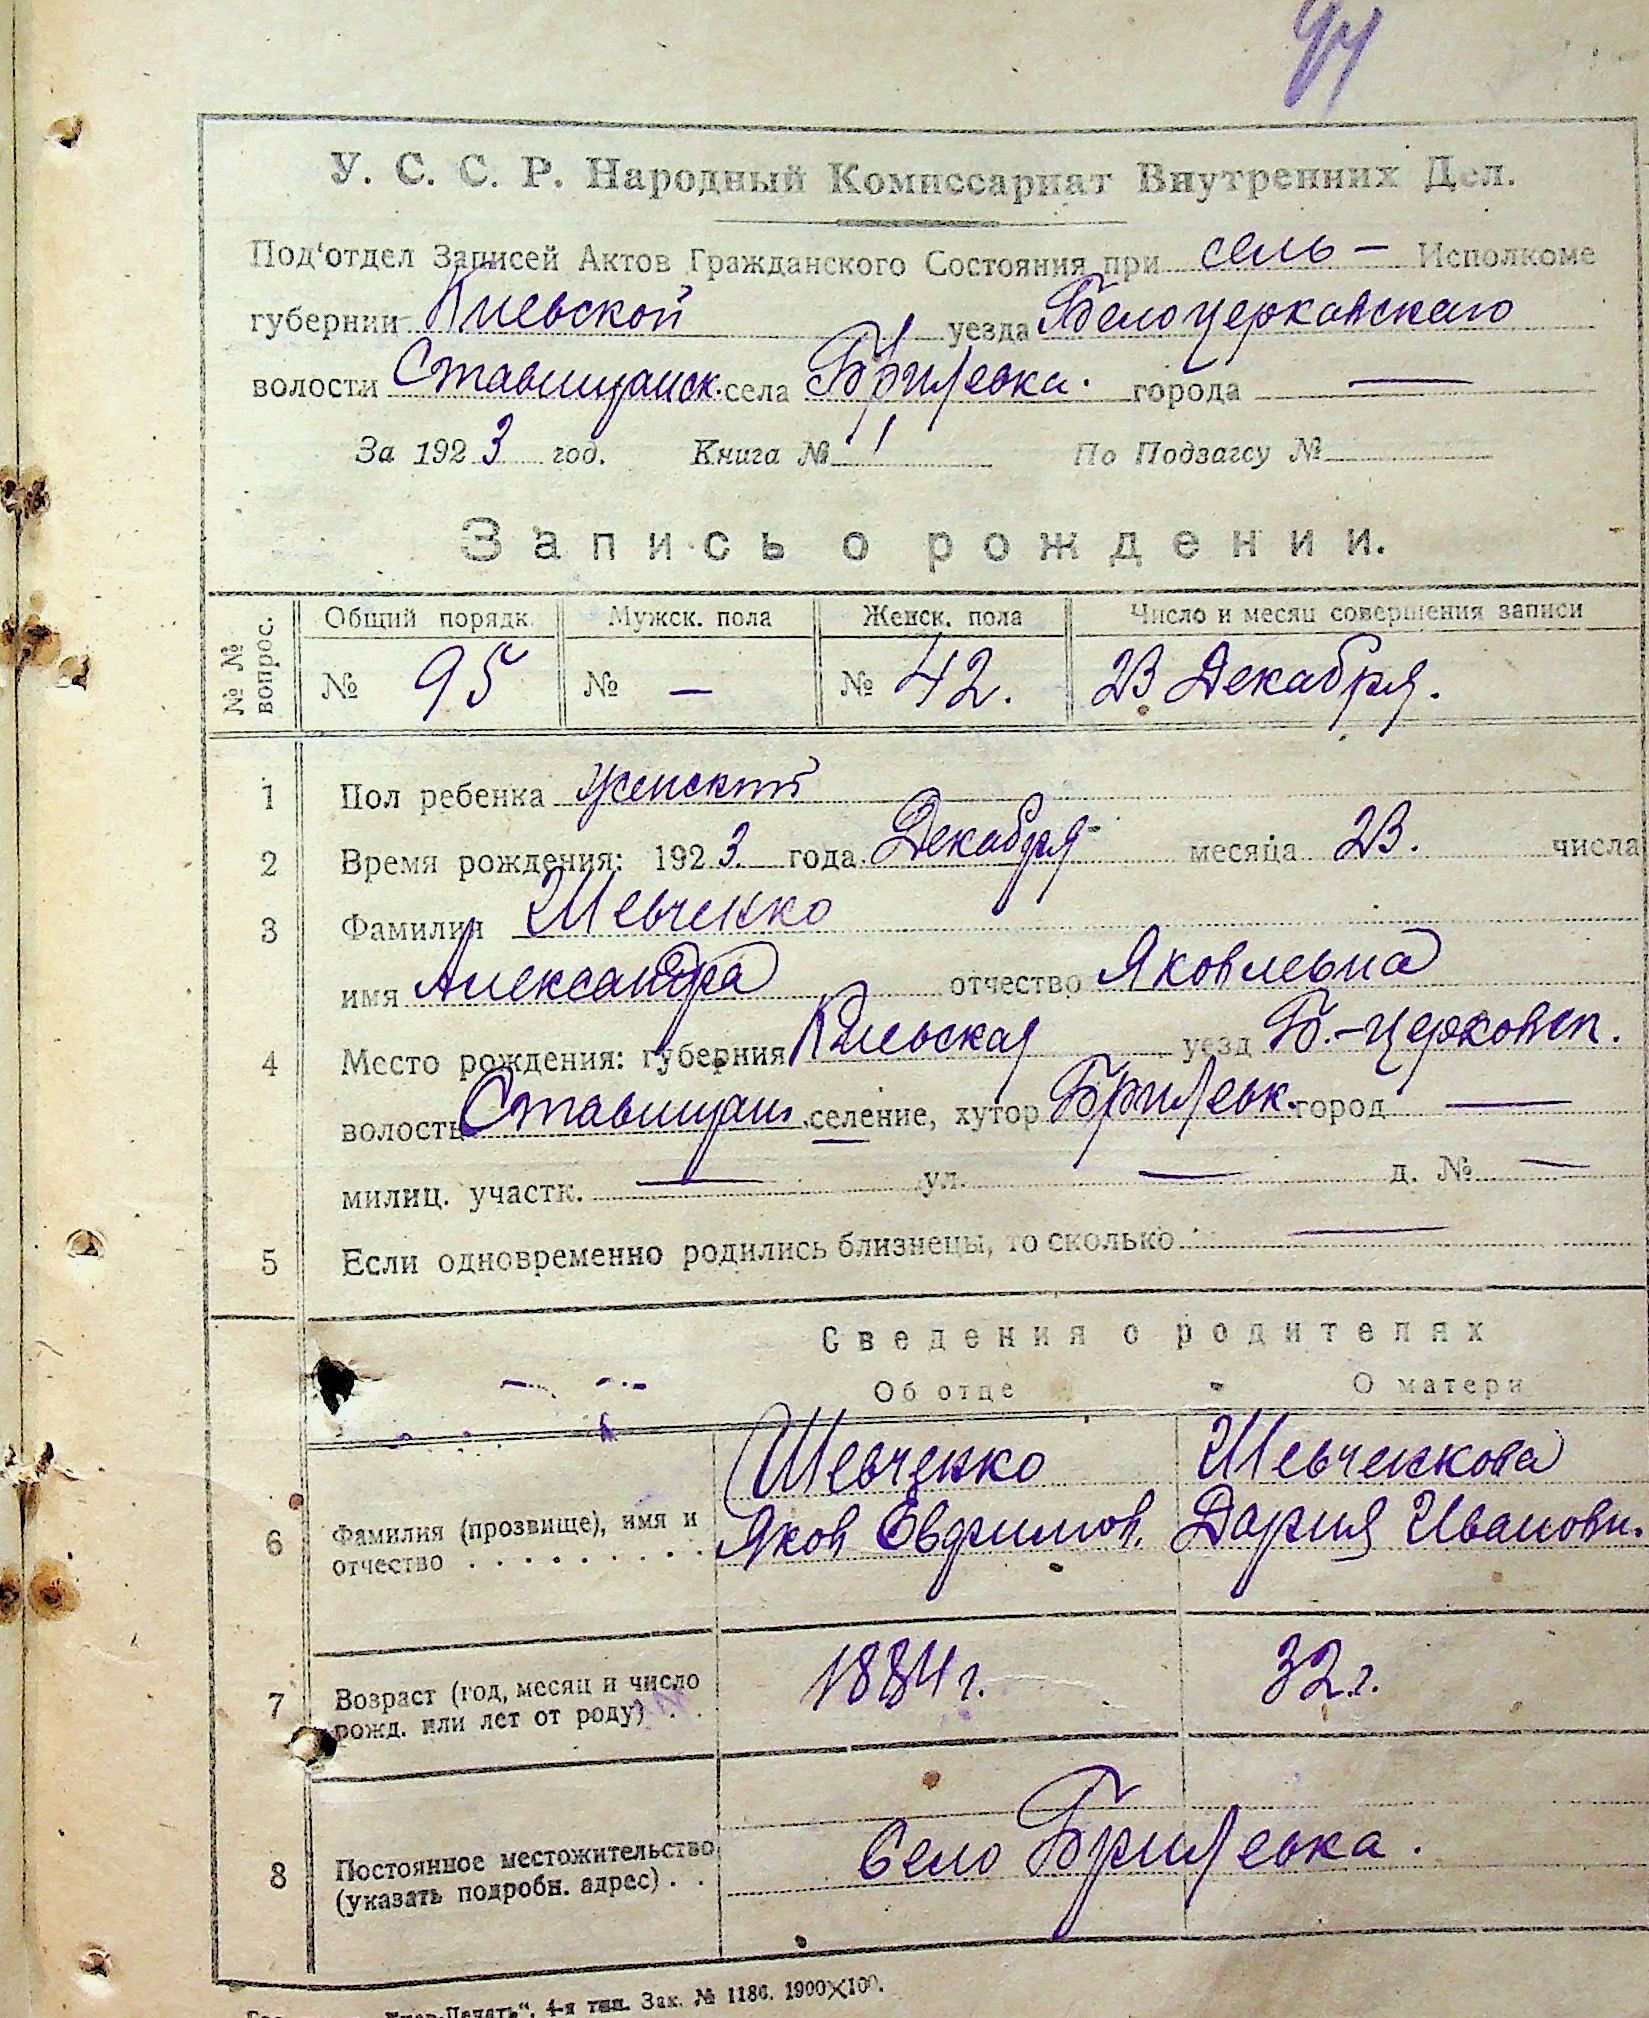 У. С. С. Р. Народный Комиссариат Внутренних Дел.
Под'отдел Записей Актов Гражданского Состояния при сель – Исполкоме
губернии Киевской уезда Белоцерковского
волости Ставищанск. села Брилевка. города —
За 1923 год. Книга № 1 По Подзагсу №
Запись о рождении.
№ № вопрос. Общий порядк. Мужск. пола Женск. пола Число и месяц совершения записи
№ 95 № — № 42. 23 Декабря.
1 Пол ребенка женский
2 Время рождения: 1923. года Декабря месяца 23. числа
3 Фамилия Шевченко
имя Александра отчество Яковлевна
4 Место рождения: губерния Киевская уезд Б.-Церковск.
волость Ставищан. селение, хутор Брилевк. город —
милиц. участк. — ул. — д. № —
5 Если одновременно родились близнецы, то сколько —
Сведения о родителях
Об отце О матери
6 Фамилия (прозвище), имя и отчество . . . . . . . . . . Шевченко Яков Евфимов. Шевченкова Дария Ивановн.
7 Возраст (год, месяц и число рожд. или лет от роду) . . 1884 г. 32 г.
8 Постоянное местожительство (указать подробн. адрес) . . Село Брилевка.
4-я тип. Зак. № 1186. 1900×100.